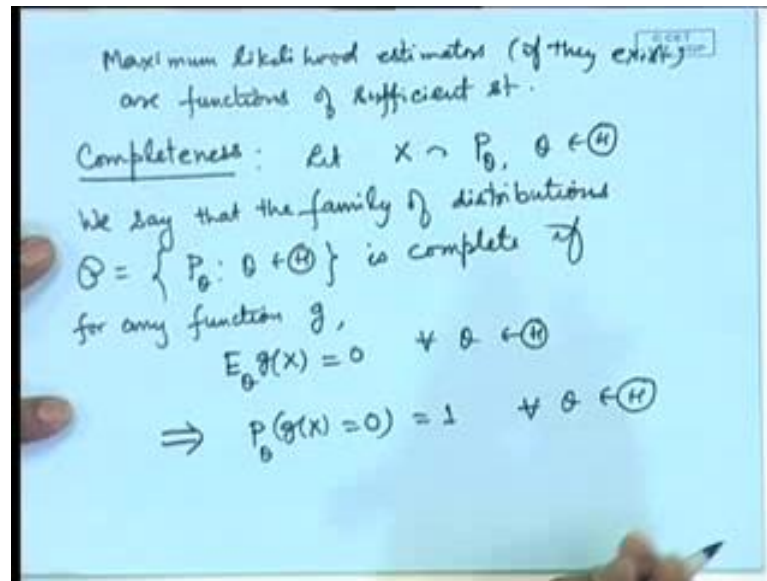 Maximum likelihood estimators (if they exist)
are functions of sufficient st.
Completeness : Let X ~ P_θ, θ ∈ Ⓗ
We say that the family of distributions
𝒫 = { P_θ : θ ∈ Ⓗ } is complete if
for any function g,
E_θ g(X) = 0 ∀ θ ∈ Ⓗ
⇒ P_θ (g(X) = 0) = 1 ∀ θ ∈ Ⓗ